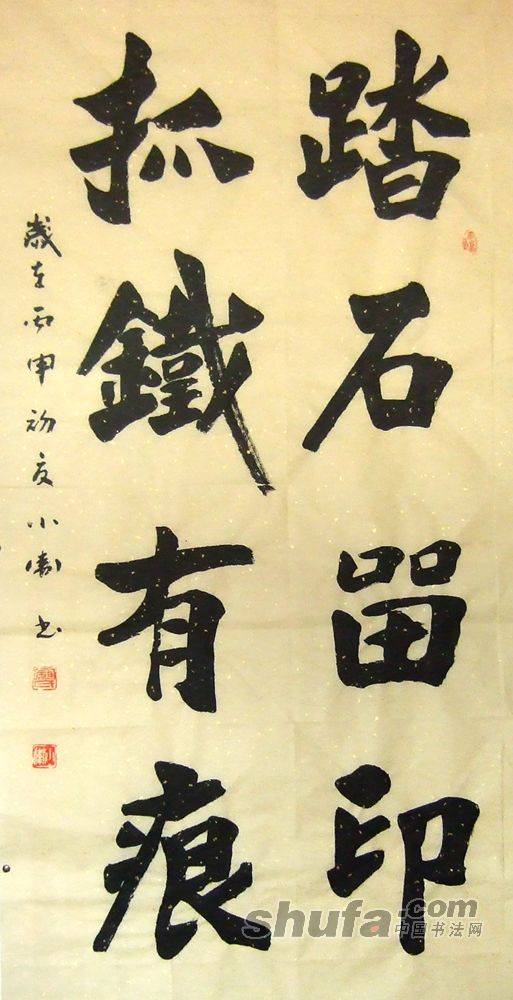 踏石留印
抓鐵有痕
歲在丙申初夏小衛书
shufa.com
中国书法网